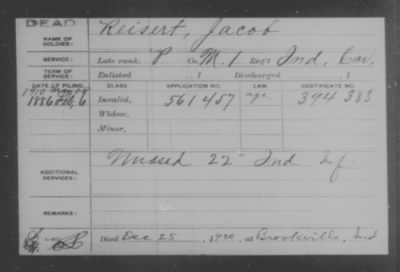 DEAD
NAME OF SOLDIER: Reisert, Jacob
SERVICE: Late rank, P Co. M. 1 Reg't Ind. Cav.
TERM OF SERVICE: Enlisted , 1 Discharged , 1
DATE OF FILING. CLASS. APPLICATION NO. LAW. CERTIFICATE NO.
1886 6 Invalid, 561457 age 394383
Widow,
Minor,
ADDITIONAL SERVICES: 22" Ind Inf
REMARKS:
Died Dec 25, 1920, at Brookville, Ind